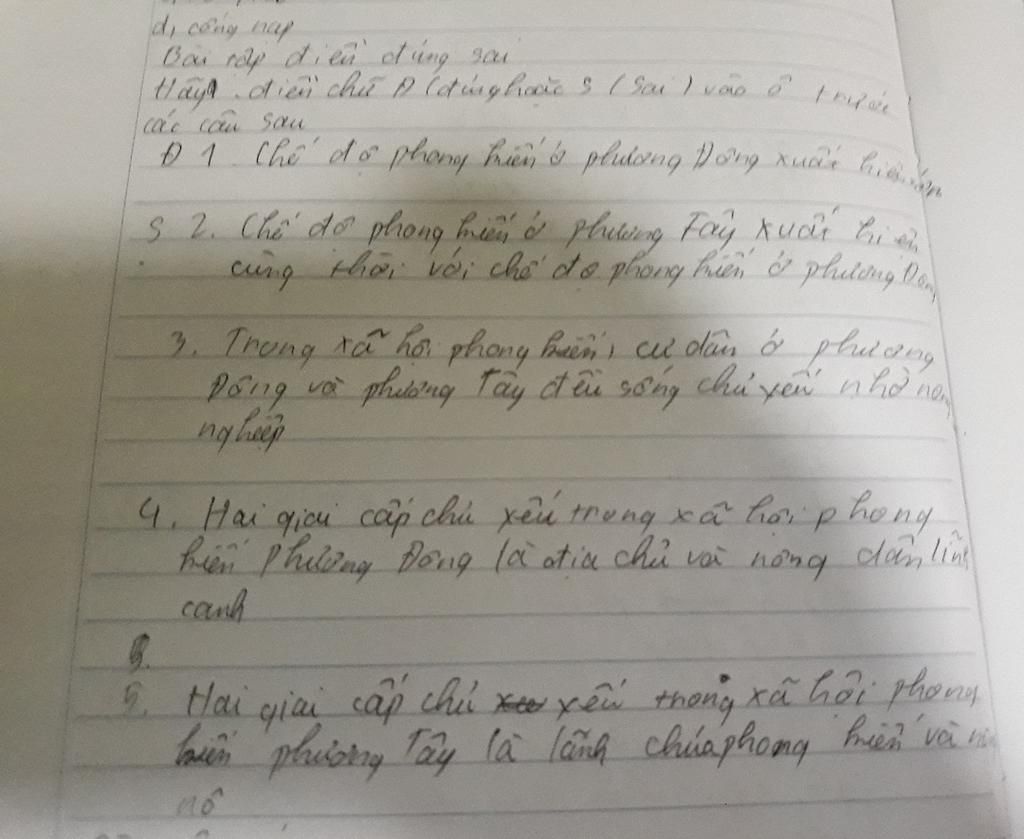 d, cống nạp
Bài tập điền đúng sai
Hãy điền chữ Đ (đúng hoặc S (sai) vào ô trước
các câu sau
Đ 1. Chế độ phong kiến ở phương Đông xuất hiện sớm
S 2. Chế độ phong kiến ở phương Tây xuất hiện
cùng thời với chế độ phong kiến ở phương Đông
3. Trong xã hội phong kiến, cư dân ở phương
Đông và phương Tây đều sống chủ yếu nhờ nông
nghiệp
4. Hai giai cấp chủ yếu trong xã hội phong
kiến Phương Đông là địa chủ và nông dân lĩnh
canh
5. Hai giai cấp chủ yếu trong xã hội phong
kiến phương Tây là lãnh chúa phong kiến và
nô